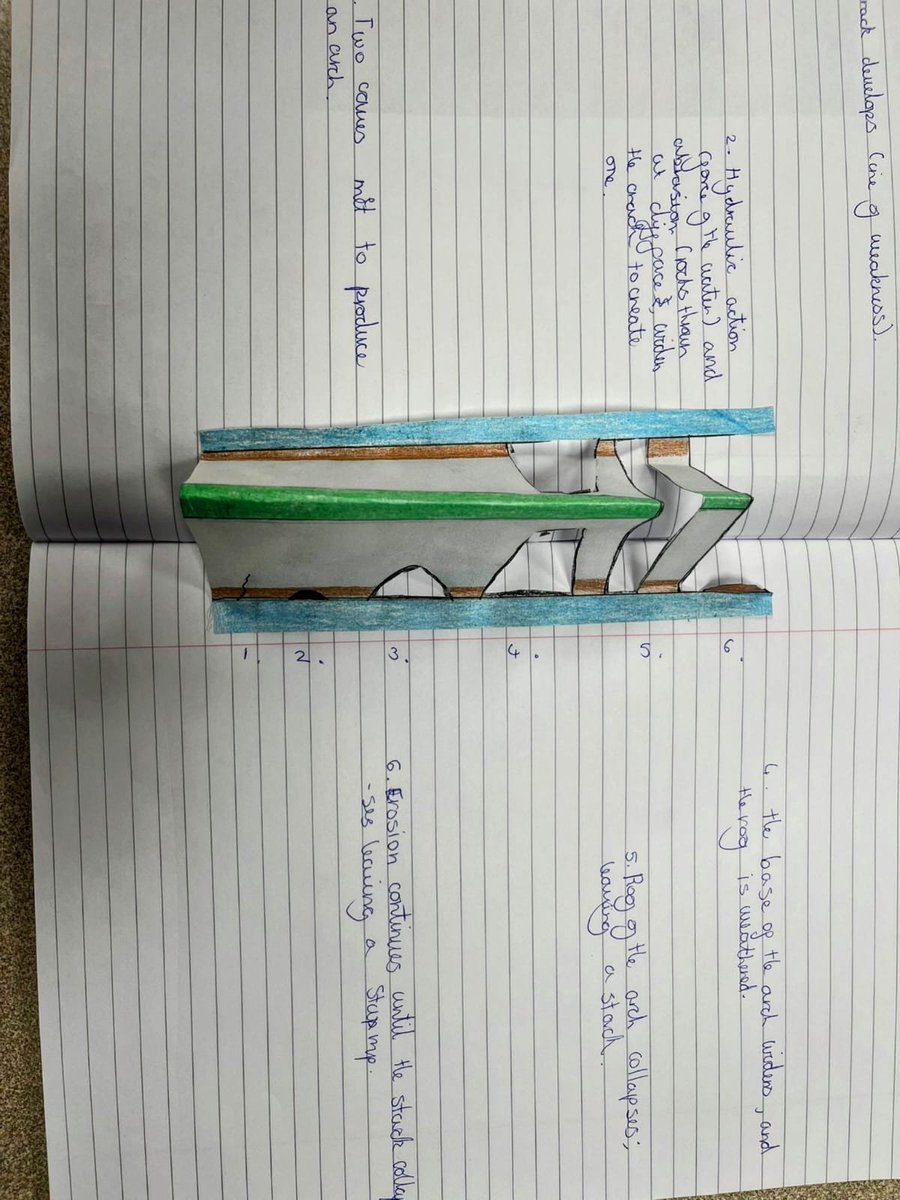 rack develops (line of weakness).
2. Hydraulic action
(force of the water) and
abrasion (rocks thrown
at cliff face), widen
the crack to create
one.
. Two caves to produce
an arch.
6.
5.
4.
3.
2.
1.
4. the base of the arch widens, and
the roof is weathered.
5. Roof of the arch collapses;
leaving a stack.
6. Erosion continues until the stack collap
-ses leaving a